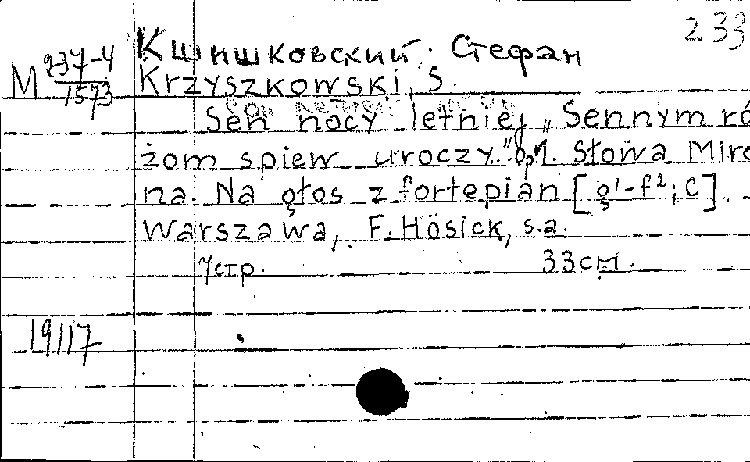 233
Кшишковский. Стефан
M 937-4/1573
Krzyszkowski, S.
Sen nocy letniej „Sennym ró
żom spiew uroczy." Op. 1. Słowa Miro
na. Na głos z fortepian [g¹-f²; C].
Warszawa, F. Hösick, s.a.
7 стр. 33 см.
19117